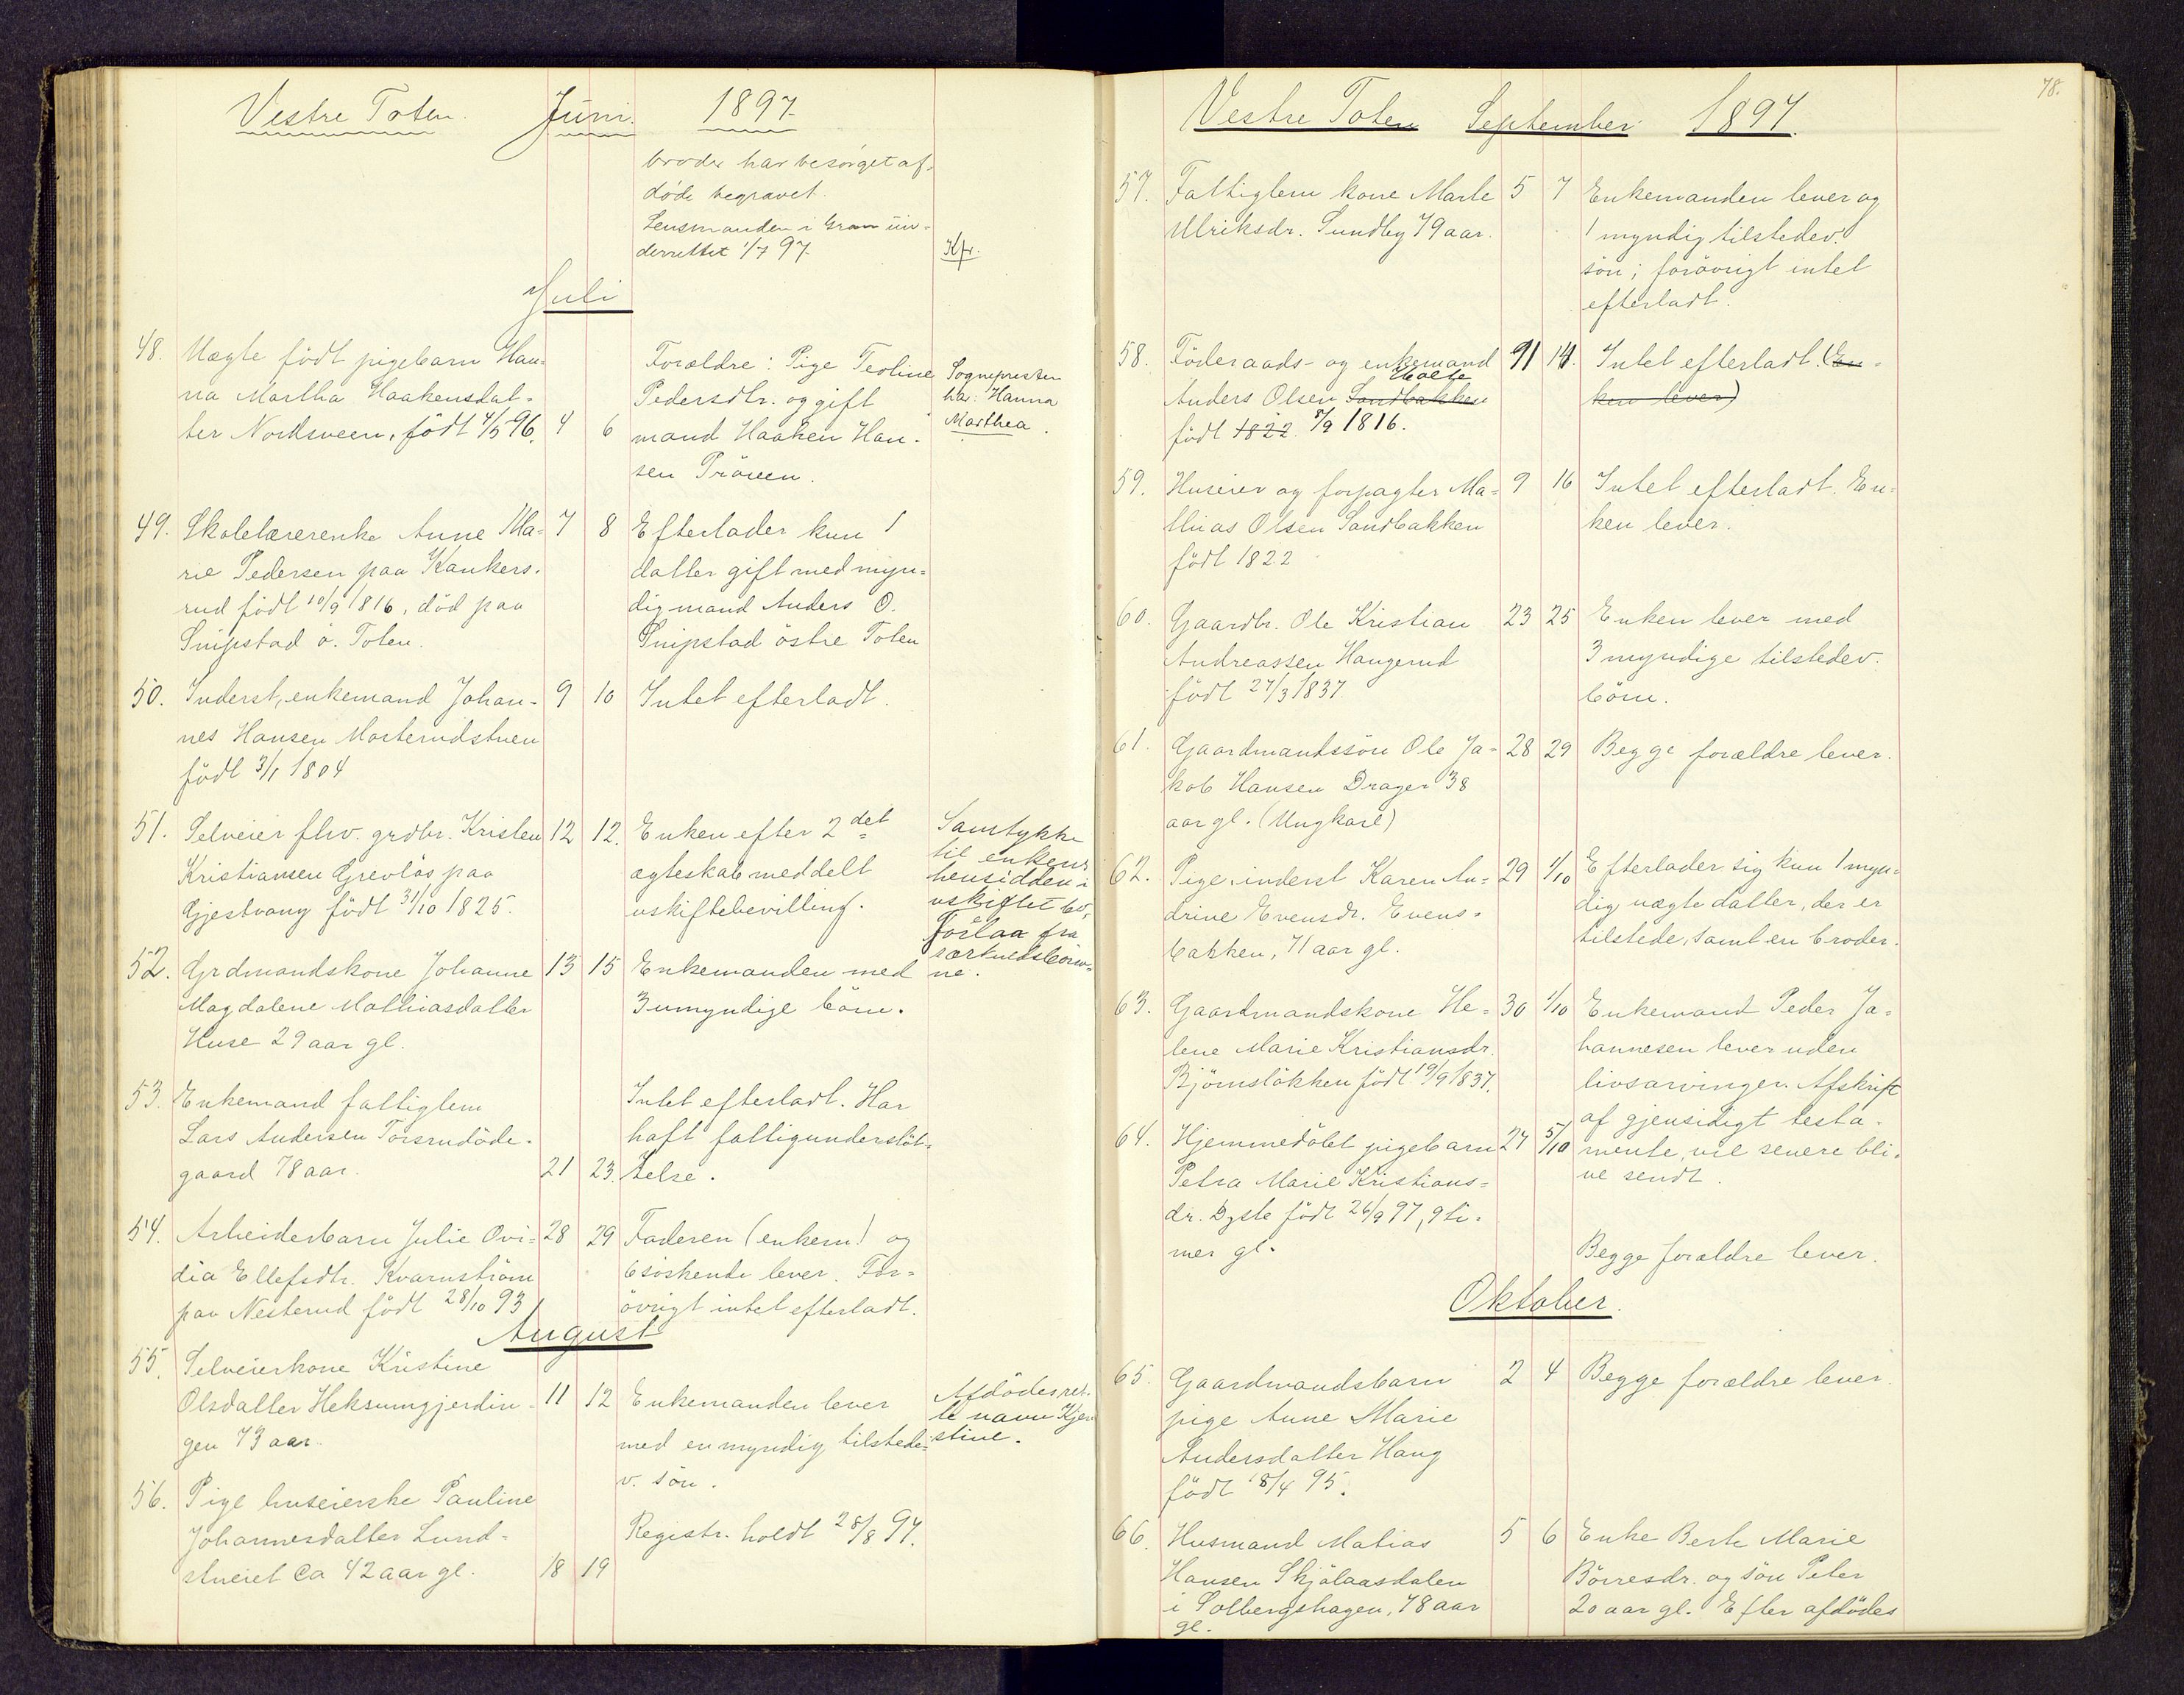 Vestre Toten. Juni. 1897
broder har besörget af-
döde begravet.
Lensmanden i Gran un-
derrettet 1/7 97. Kfr.
Juli
48. Uægte födt pigebarn Han-
na Martha Haakensdat-
ter Nordsveen, födt 4/5 96. 4 6
Forældre: Pige Teoline
Pedersdtr. og gift
mand Haaken Han-
sen Pröven.
Sogneprsten
ha: Hanna
Marthea.
49. Skolelærerenke Anne Ma- 7 8 Efterlader kun 1
rie Pedersen paa Kankers- datter gift med myn-
rud födt 10/9 1816, död paa dig mand Anders O.
Snipstad ö. Toten. Snipstad östre Toten
50. Inderst, enkemand Johan- 9 10 Intet efterladt.
nes Hansen Morterudstuen
födt 3/1 1804
51. Selveier fhv. grdbr. Kristen 12 12. Enken efter 2det
Kristiansen Grevlös paa ægteskab meddelt
Gjestvang födt 31/10 1825. uskiftebevilling.
Samtykke
til enkens
hensidden i
uskiftet bo,
forlaa fra
særkuldsbörne-
ne.
52. Grdmandskone Johanne 13 15 Enkemanden med
Magdalene Mathiasdatter 3 umyndige börn.
Huse 29 aar gl.
53. Enkemand fattiglem Intet efterladt. Har
Lars Andersen Torsrudöde- haft fattigunderstöt-
gaard 78 aar. 21 23. telse.
54. Arbeiderbarn Julie Ovi- 28 29 Faderen (enkem) og
dia Ellefsdtr. Kvarnström 6 söskende lever. For-
paa Nesterud födt 28/10 93 övrigt intet efterladt.
August
55. Selveierkone Kristine
Olsdatter Heksumgjerdin- 11 12 Enkemanden lever
gen 73 aar. med en myndig tilstede-
v. sön.
Afdödes ret-
te navn Kjer-
stine.
56. Pige huseierske Pauline
Johannesdatter Lund- Registr. holdt 28/8 97.
stueiet ca 42 aar gl. 18 19
78.
Vestre Toten September 1897.
57. Fattiglem kone Marte 5 7 Enkemanden lever og
Ulriksdr. Sundby 79 aar. 1 myndig tilstedev.
sön; forövrigt intet
efterladt.
58. Föderaads- og enkemand 91 14. Intet efterladt. (En-
Anders Olsen Sandbakken Holte ken lever)
födt 1822 8/9 1816.
59. Huseier og forpagter Ma- 9 16 Intet efterladt. En-
thias Olsen Sandbakken ken lever.
födt 1822
60. Gaardbr. Ole Kristian 23 25 Enken lever med
Andreassen Haugerud 3 myndige tilstedev.
födt 27/3 1837. börn.
61. Gaardmandssön Ole Ja- 28 29 Begge forældre lever.
kob Hansen Drager 38
aar gl. (Ungkarl)
62. Pige inderst Karen An- 29 1/10 Efterlader sig kun 1 myn-
drine Evensdr. Evens- dig uægte datter, der er
bakken, 71 aar gl. tilstede, samt en broder.
63. Gaardmandskone He- 30 1/10 Enkemand Peder Jo-
lene Marie Kristiansdr. hannesen lever uden
Björnslökken födt 19/9 1837. livsarvinger. Afskrift
af gjensidigt testa-
mente, vil senere bli-
ve sendt.
64. Hjemmedöbt pigebarn 27 5/10
Petra Marie Kristians-
dr. Dyste födt 26/9 97, 9 ti-
mer gl. Begge forældre lever.
Oktober.
65. Gaardmandsbarn 2 4 Begge forældre lever.
pige Anne Marie
Andersdatter Haug
födt 18/4 95.
66. Husmand Matias 5 6 Enke Berte Marie
Hansen Skjölaasdalen Börresdr. og sön Peter
i Solbergshagen, 78 aar 20 aar gl. Efter afdödes
gl.